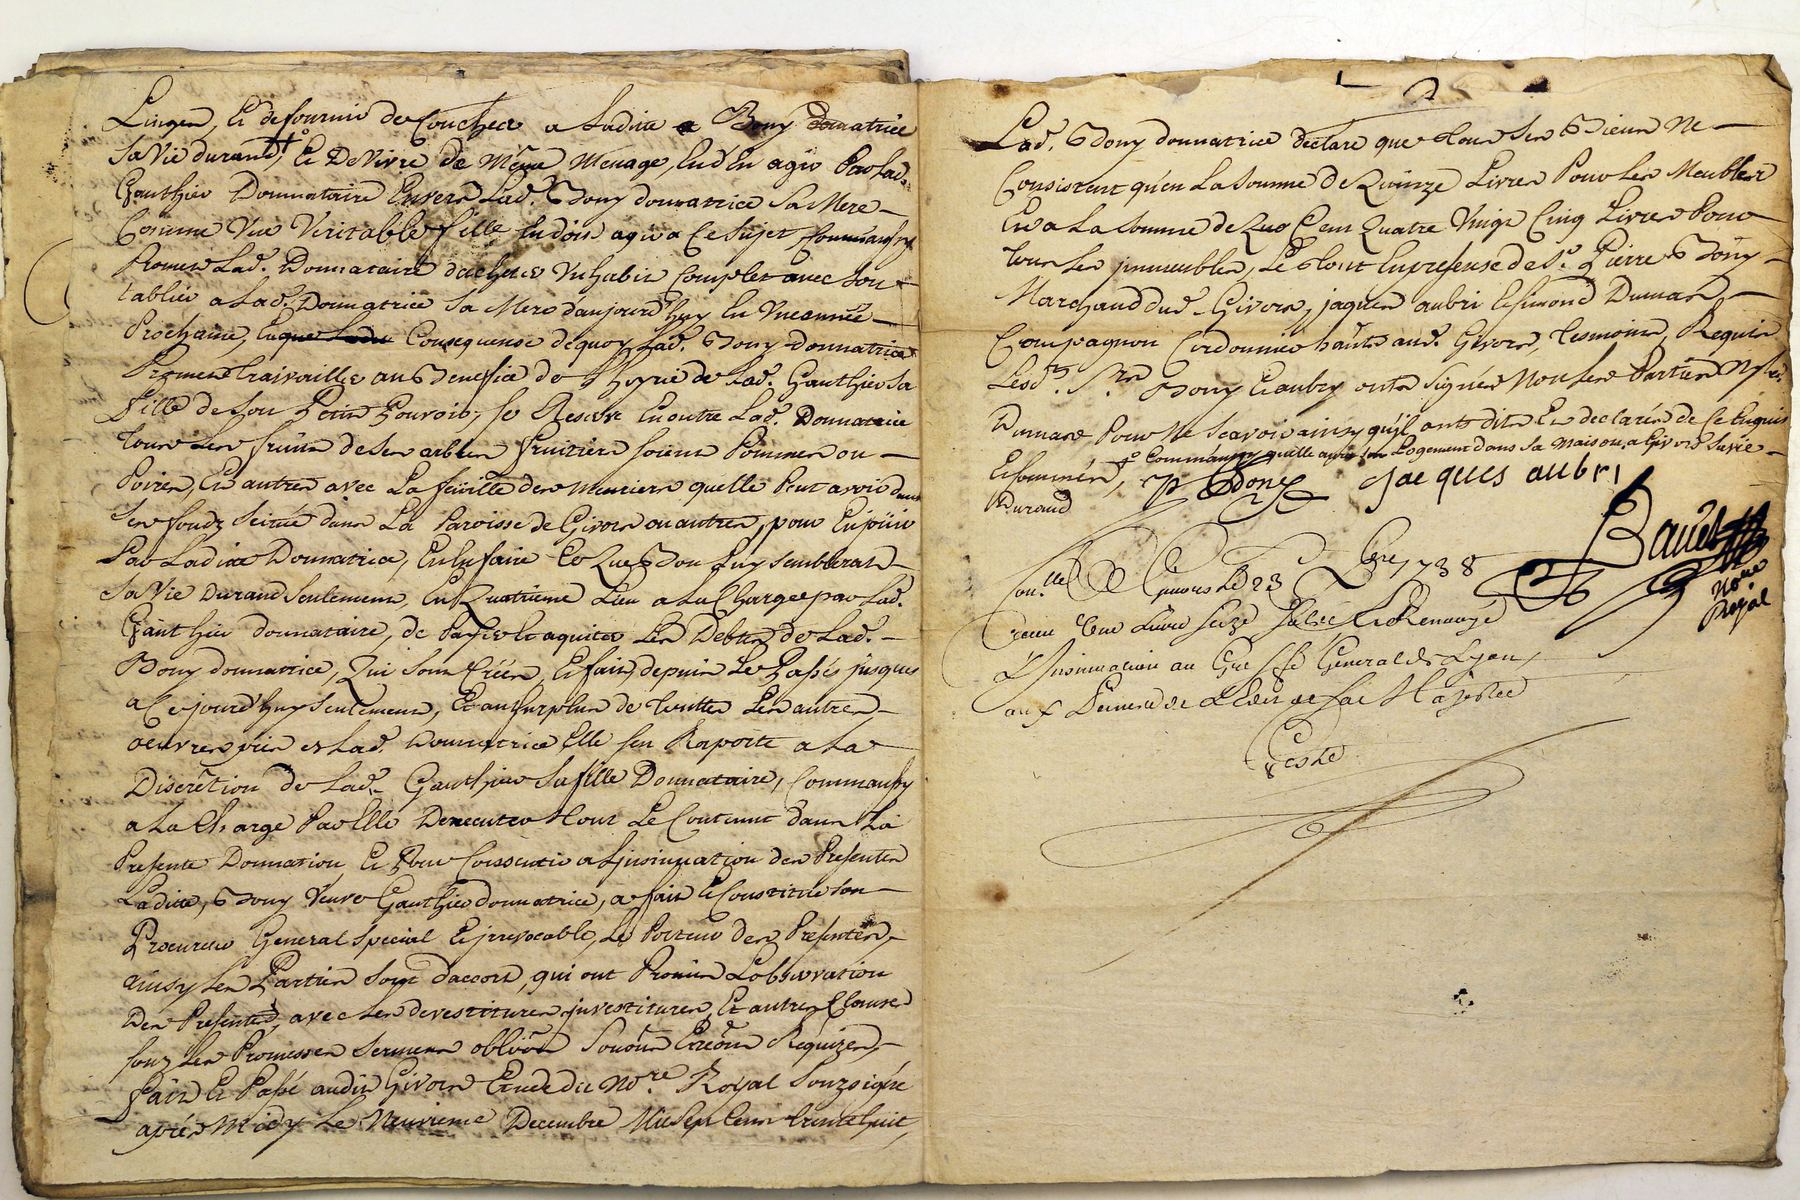 Linges, Et de fournir de Couches a Ladite Bony donnatrice
Sa Vie durant, Et De Vivre de Même Ménage, En d'En agir Par Lad.
Gauthier Donnataire Envers Lad. Bony donnatrice Sa Mere
Comme Une Veritable fille En dois agir a Ce Sujet Comme aussy
Promet Lad. Donnataire dachepter Un habit Complet avec Son
tablier a Lad. Donnatrice Sa Mere d'aujourd'huy En Une année
Prochaine, En Consequense dequoy Lad. Bony donnatrice
Promet travailler au Benefice de Lad. Gauthier Sa
fille de Son Petit Pouvoir, se Reserve En outre Lad. Donnatrice
tous Les fruits de Ses arbres fruitiers soient Pommes ou
Poires, Et autres avec La feüille des meuriers quelle Peut avoir dans
Ses fondz Scitué dans La Paroisse de Givors ou autres, pour En joüir
Par Ladite Donnatrice, En En faire Ce Que Bon Luy Semblerat
Sa Vie durant Seulement, En Quatrieme Lieu a La Charge par Lad.
Gauthier donnataire, de Payer Et aquiter Les Debtes de Lad.
Bony donnatrice, Qui Sont Créés, Et fait depuis Le Passé jusques
a Cejourd'huy Seulement, Et au surplus de touttes Les autres
oeuvres pies Lad. Donnatrice Elle Sen Raporte a La
Discrêtion de Lad. Gauthier Sa fille Donnataire, Comm'aussy
a La Charge Par Elle Dexecuter tout Le Contenut dans La
Presente Donnation Et Pour Consentir a Linsinuation des Presentes
Ladite, Bony Veuve Gauthier donnatrice, a fait Et Constitué Son
Procureur General Special Et jrrevocable, Le Porteur des Presentes
ainsy Les Parties Sont daccort, qui ont Promis Lobservation
Des Presentes, avec Les devestitures, jnvestitures, Et autres Clauses
souz Les Promesses Sermens obliõn Soûõn Requizes
Fait Et Passé audit Givors Etude du Nore. Royal Souzsigné
après Midy Le Neuvieme Decembre Mil Sept Cent trente huit,
Lad. Bony donnatrice declare que tous Ses Biens Ne
Consistent qu'en La Somme de Quinze Livres Pour Les Meubles
Et a La Somme de Cent Quatre Vingt Cinq Livres Pour
tous Les jmmeubles, Le tout En presense de Sr. Pierre Bony
Marchand dud. Givors, jaques aubri Et Dumas
Compagnon Cordonnier hâtt aud. Givors, tesmoins, Requis
Lesd. Srs. Bony Et aubry onts Signés Non Les Parties Ny Led.
Dumas Pour Ne Scavoir ainsy qu'il onts dits Et declarés de Ce Enquis
Et Sommés, + Comm'aussy quelle aura son Logement dans Sa Maison a Givors Sa vie
Durand P Bony Jacques aubri
Bauët
Nore
Royal
Con.lle a Givors Le 23 Xbre 1738
Reçu Une Livre Seize Sols Et Renvoyé
L'Insinuation au Greffe General de Lyon,
aux Peines de L'Edit de Sa Majesté
Teste